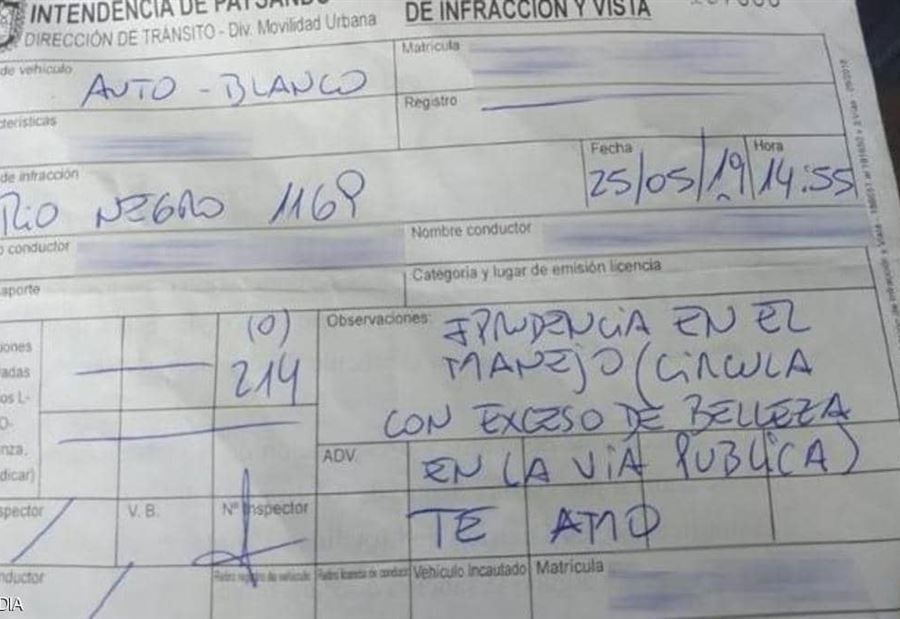 INTENDENCIA DE PAYSANDÚ
DIRECCIÓN DE TRÁNSITO - Div. Movilidad Urbana
DE INFRACCIÓN Y VISTA
de vehículo
AUTO - BLANCO
Matrícula
Registro
cterísticas
de infracción
RIO NEGRO 1169
Fecha
25/05/19
Hora
14:55
o conductor
Nombre conductor
aporte
Categoría y lugar de emisión licencia
iones
adas
os L-
O-
nza,
dicar)
(O)
214
Observaciones:
IPRUDENCIA EN EL
MANEJO (CIRCULA
CON EXCESO DE BELLEZA
EN LA VIA PUBLICA)
TE AMO
ADV.
spector
V. B.
Nº Inspector
nductor
Retiro registro de vehículo
Retiro licencia de conducir
Vehículo Incautado
Matrícula
DIA